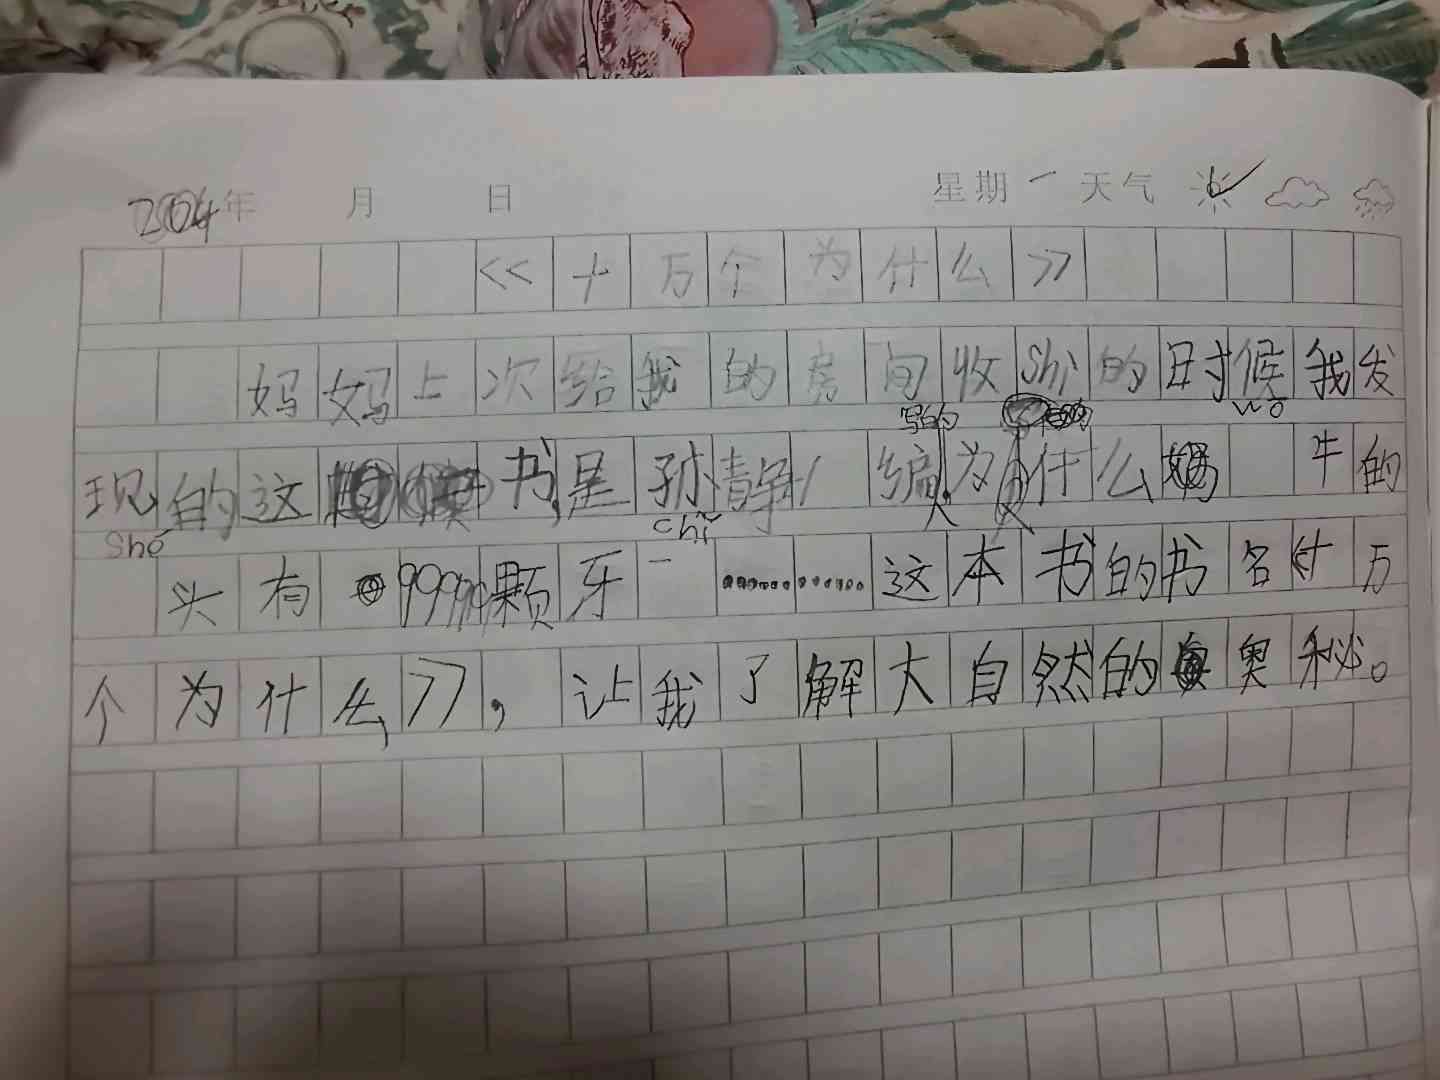 2024年 月 日 星期一 天气
<<十万个为什么>>
妈妈上次给我的房间收shi的时候我发
写的
wō
现的这书,是孙静 编,为什么蜗 牛的
shé chǐ
头有9999颗牙 ............这本书的书名《十万
个为什么》,让我了解大自然的奥秘。